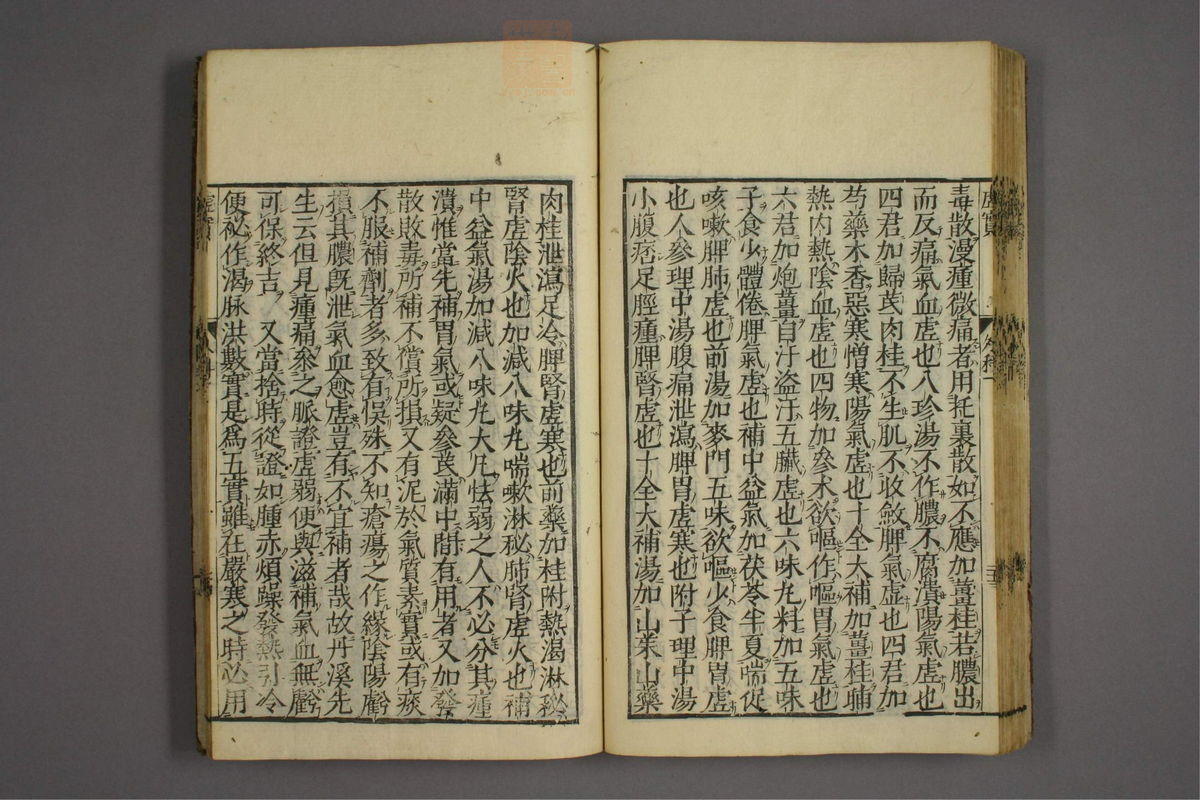 毒散漫腫微痛者用托裏散如不應加薑桂若膿出
而反痛氣血虛也八珍湯不作膿不腐潰陽氣虛也
四君加歸芪肉桂不生肌不收斂脾氣虛也四君加
芍藥木香惡寒憎寒陽氣虛也十全大補加薑桂晡
熱內熱陰血虛也四物加參朮欲嘔作嘔胃氣虛也
六君加炮薑自汗盜汗五臟虛也六味丸料加五味
子食少體倦脾氣虛也補中益氣加茯苓半夏喘促
咳嗽脾肺虛也前湯加麥門五味欲嘔少食脾胃虛
也人參理中湯腹痛泄瀉脾胃虛寒也附子理中湯
小腹痞足脛腫脾腎虛也十全大補湯加山茱山藥
肉桂泄瀉足冷脾腎虛寒也前藥加桂附熱渴淋秘
腎虛陰火也加減八味丸喘嗽淋秘肺腎虛火也補
中益氣湯加減八味丸大凡怯弱之人不必分其腫
潰惟當先補胃氣或疑參芪滿中間有用者又加發
散敗毒所補不償所損又有泥於氣質素實或有痰
不服補劑者多致有悮殊不知瘡瘍之作緣陰陽虧
損其膿既泄氣血愈虛豈有不宜補者哉故丹溪先
生云但見腫痛參之脈證虛弱便與滋補氣血無虧
可保終吉　又當捨時從證如腫赤煩躁發熱引冷
便祕作渴脉洪數實是爲五實雖在嚴寒之時必用
虛實